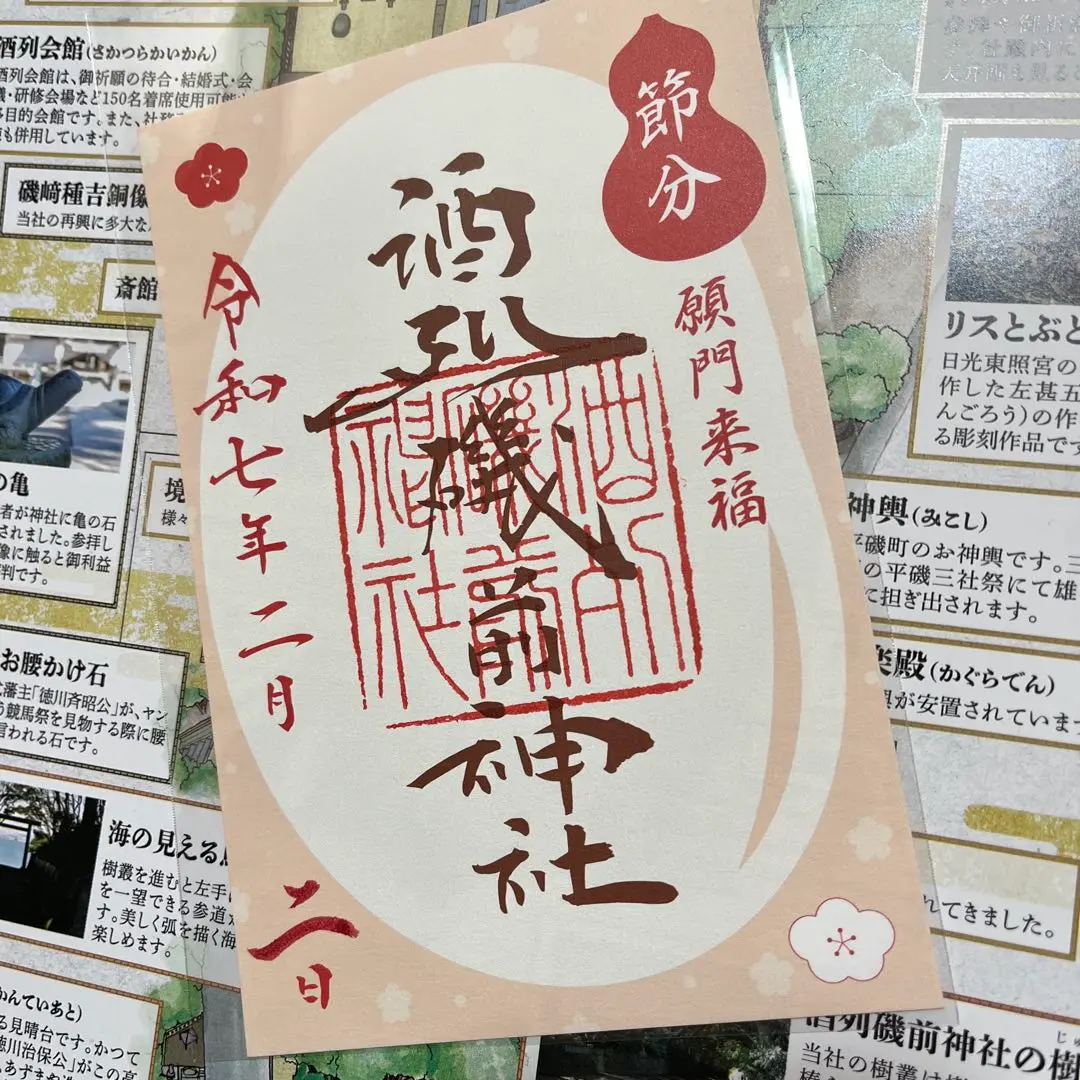 節分
願門来福
酒列磯前神社
酒列磯前神社
令和七年二月二日
酒列会館(さかつらかいかん)
酒列会館は、御祈願の待合・結婚式・会
議・研修会場など150名着席使用可能
多目的会館です。また、社務
も併用しています。
磯﨑種吉銅像
当社の再興に多大な
斎館
の亀
者が神社に亀の石
されました。参拝し
像に触ると御利益
判です。
境
様々
お腰かけ石
藩主「徳川斉昭公」が、ヤン
う競馬祭を見物する際に腰
言われる石です。
海の見える
樹叢を進むと左手
を一望できる参道
す。美しく弧を描く海
楽しめます。
かんていあと)
る見晴台です。かつて
徳川治保公」がこの高
リスとぶど
日光東照宮の
作した左甚五
んごろう)の作
る彫刻作品です
神輿(みこし)
平磯町のお神輿です。三
の平磯三社祭にて雄
に担ぎ出されます。
楽殿(かぐらでん)
が安置されていま
れてきました。
酒列磯前神社の樹
当社の樹叢は